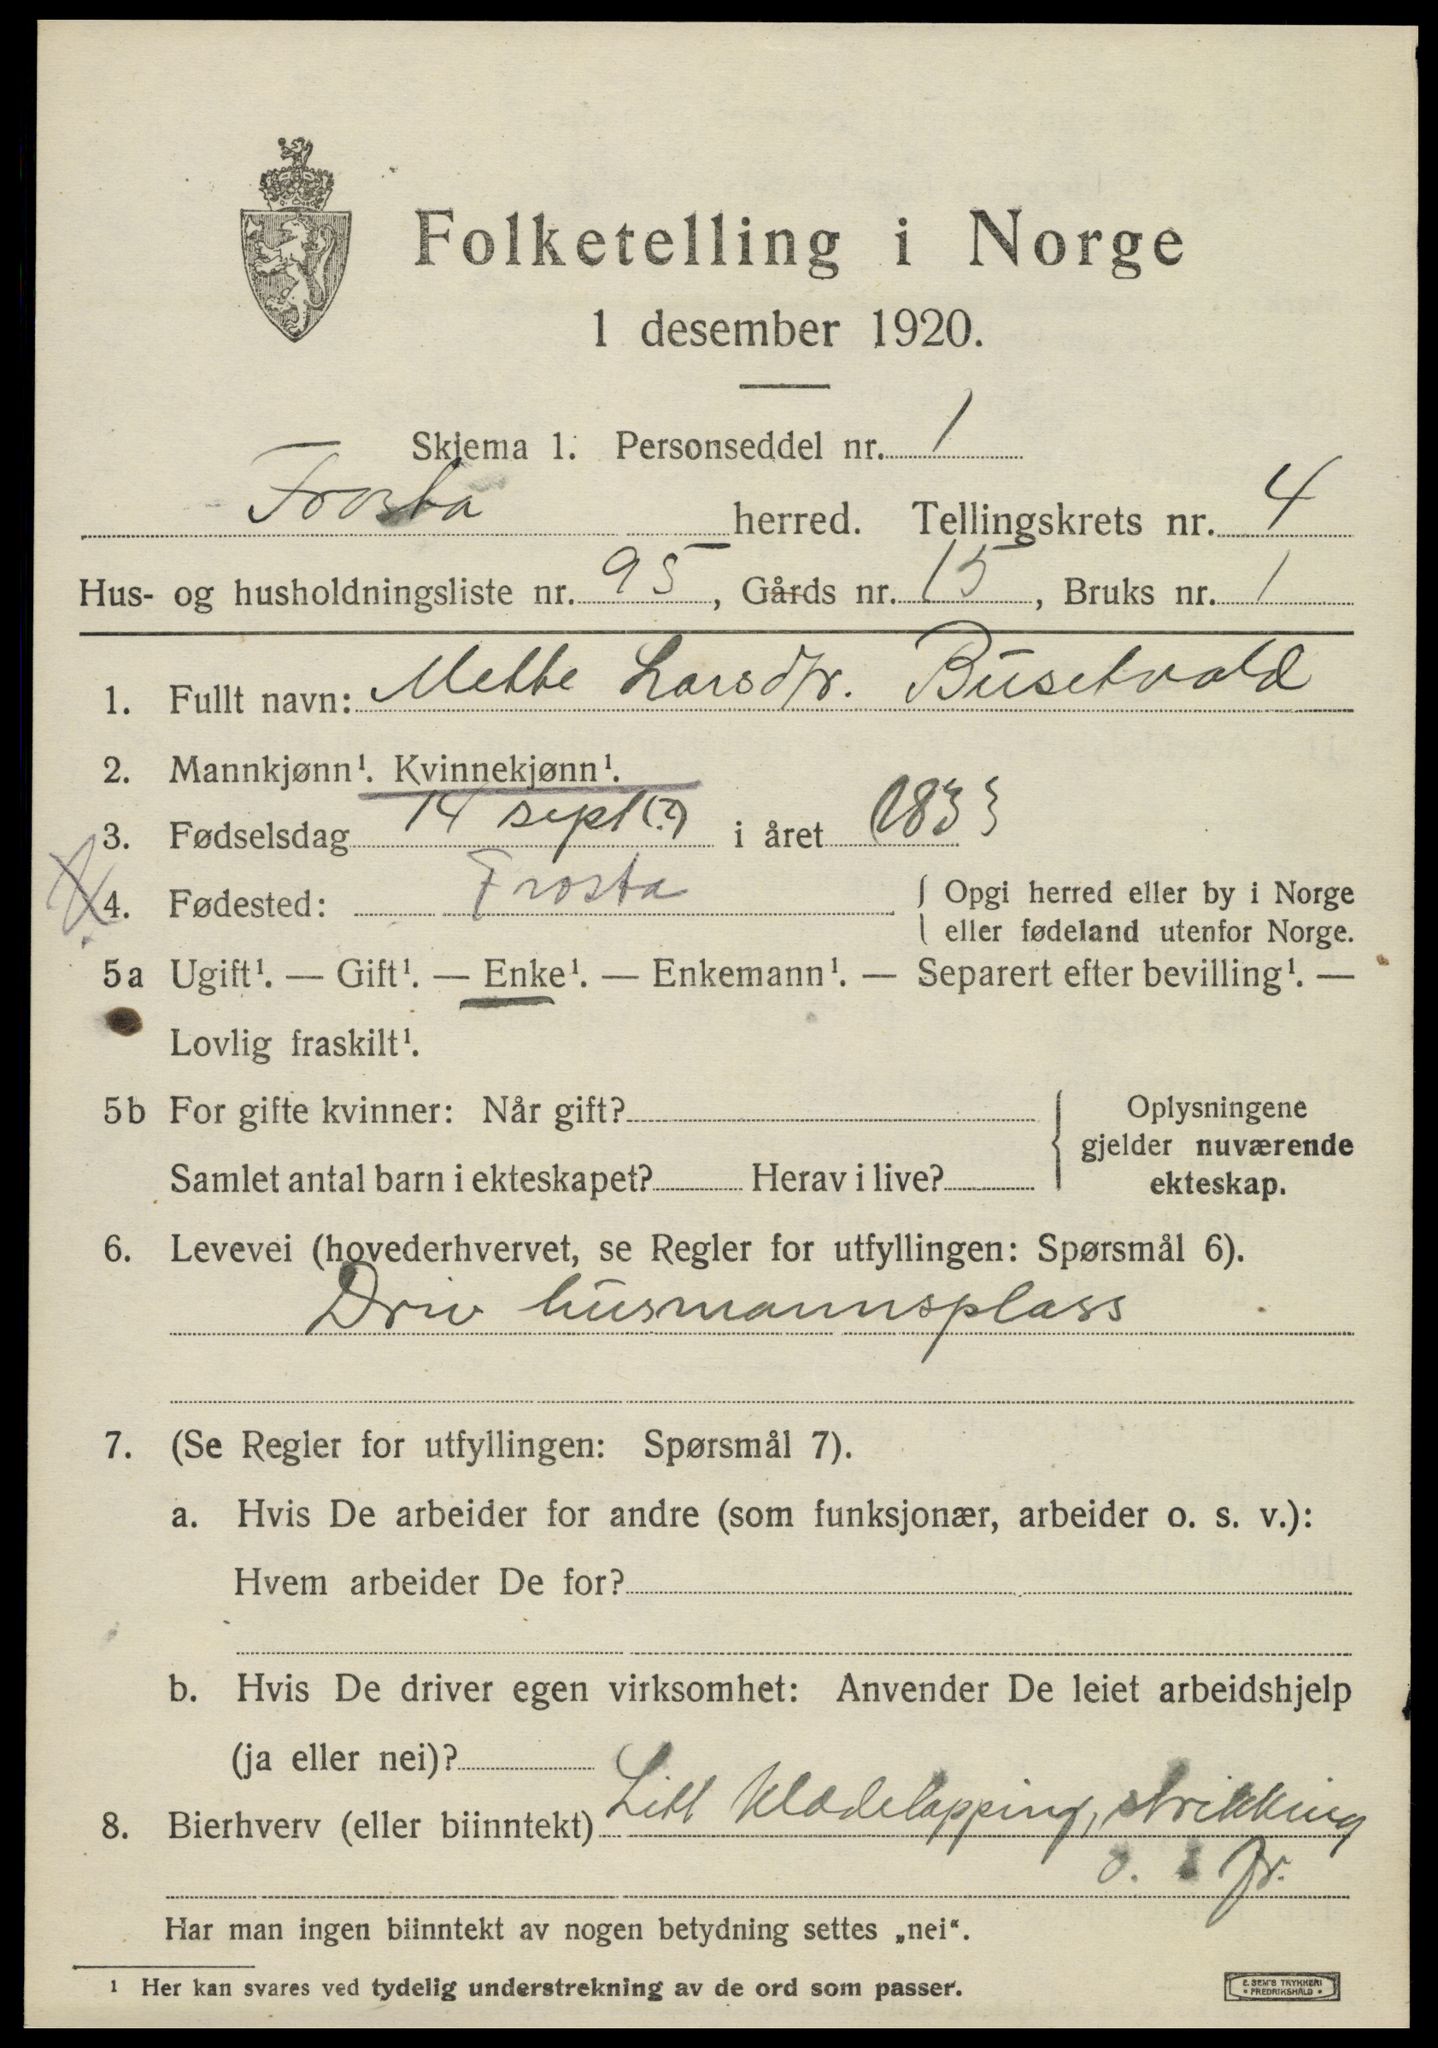 Folketelling i Norge
1 desember 1920.
Skjema 1. Personseddel nr. 1
Frosta herred. Tellingskrets nr. 4
Hus- og husholdningsliste nr. 95, Gårds nr. 15, Bruks nr. 1
1. Fullt navn: Mette Larsdtr. Busetvald
2. Mannkjønn¹. Kvinnekjønn¹.
3. Fødselsdag 14 sept (?) i året 1833
4. Fødested: Frosta { Opgi herred eller by i Norge
eller fødeland utenfor Norge.
5a Ugift¹. — Gift¹. — Enke¹. — Enkemann¹. — Separert efter bevilling¹. —
Lovlig fraskilt¹.
5b For gifte kvinner: Når gift? { Oplysningene
gjelder nuværende
Samlet antal barn i ekteskapet? Herav i live? ekteskap.
6. Levevei (hovederhvervet, se Regler for utfyllingen: Spørsmål 6).
Driv husmannsplass
7. (Se Regler for utfyllingen: Spørsmål 7).
a. Hvis De arbeider for andre (som funksjonær, arbeider o. s. v.):
Hvem arbeider De for?
b. Hvis De driver egen virksomhet: Anvender De leiet arbeidshjelp
(ja eller nei)?
8. Bierhverv (eller biinntekt) Litt klædelapping, strikking
o.
Har man ingen biinntekt av nogen betydning settes „nei“.
¹ Her kan svares ved tydelig understrekning av de ord som passer.
E. SEM'S TRYKKERI
• FREDRIKSHALD •